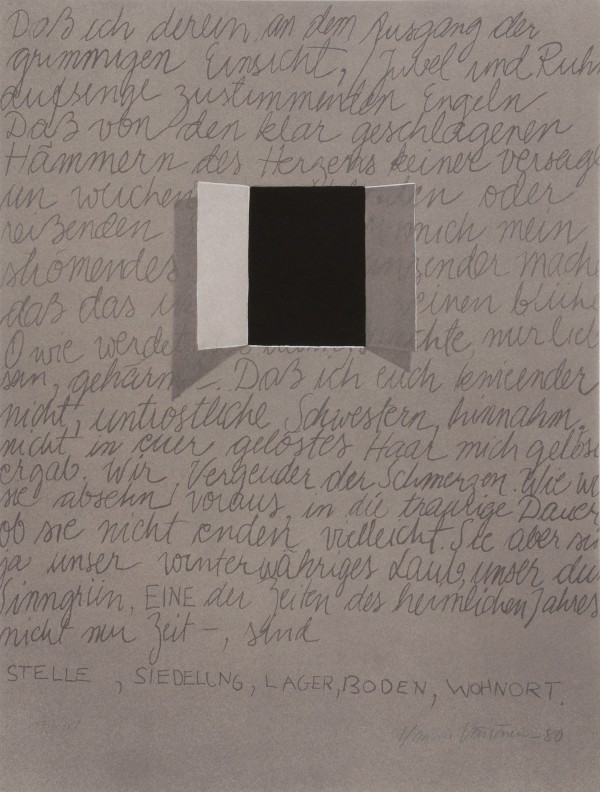 Daß ich derein an dem Ausgang der
grimmigen Einsicht, Jubel und Ruhm
aufsinge zustimmenden Engeln
Daß von den klar geschlagenen
Hämmern des Herzens keiner versagt
un weichen oder
reißenden mich mein
strömendes änzender mache
daß das einen blühe
O wie werdet nur lieb
sein, gehärm –. Daß ich euch knieender
nicht, untröstliche Schwestern, hinnahm,
nicht in euer gelöstes Haar mich gelöst
ergab. Wir, Vergeuder der Schmerzen. Wie wi
sie absehn voraus, in die traurige Dauer,
ob sie nicht enden vielleicht. Sie aber sin
ja unser winterwähriges Laub, unser du
Sinngrün, EINE der Zeiten des heimlichen Jahres
nicht nur Zeit –, sind
STELLE, SIEDELUNG, LAGER, BODEN, WOHNORT.
80